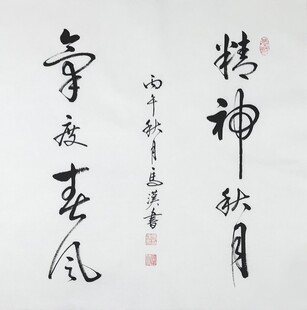 精神秋月
丙午秋月馬漢書
氣度春風